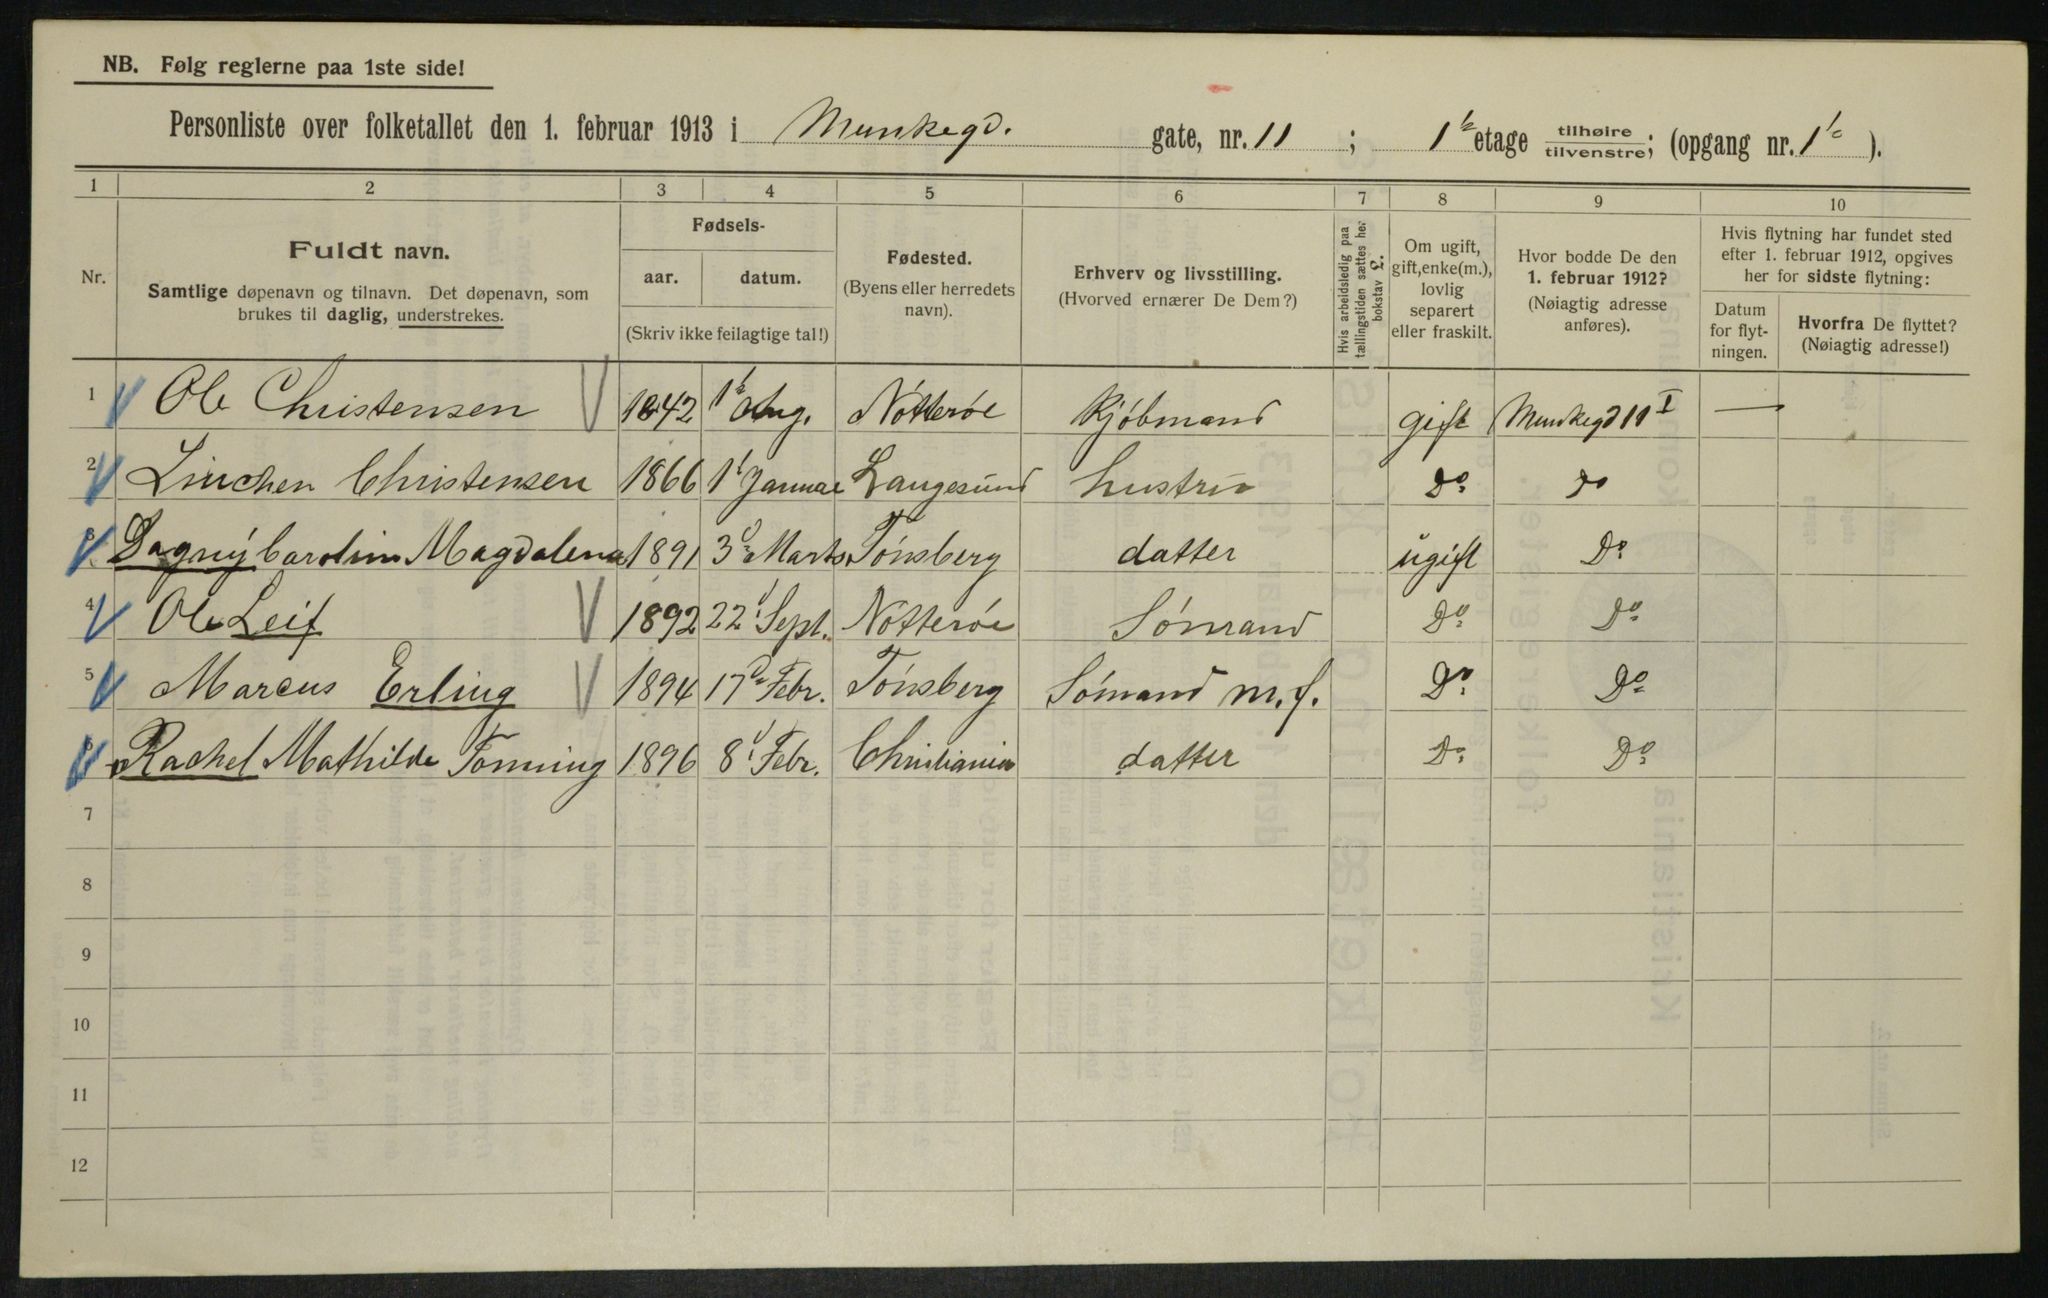 NB. Følg reglerne paa 1ste side!
Personliste over folketallet den 1. februar 1913 i Munkegd. gate, nr. 11 ; 1ste etage tilhøire / tilvenstre; (opgang nr. 1 ).
1 2 3 4 5 6 7 8 9 10
Nr.
Fuldt navn.
Samtlige døpenavn og tilnavn. Det døpenavn, som
brukes til daglig, understrekes.
Fødsels-
aar. datum.
(Skriv ikke feilagtige tal!)
Fødested.
(Byens eller herredets
navn).
Erhverv og livsstilling.
(Hvorved ernærer De Dem?)
Hvis arbeidsledig paa
tællingstiden sættes her
bokstav L.
Om ugift,
gift, enke(m.),
lovlig
separert
eller fraskilt.
Hvor bodde De den
1. februar 1912?
(Nøiagtig adresse
anføres).
Hvis flytning har fundet sted
efter 1. februar 1912, opgives
her for sidste flytning:
Datum
for flyt-
ningen.
Hvorfra De flyttet?
(Nøiagtig adresse!)
1 Ole Christensen 1842 1 Aug. Nötteröe Kjöbmand gift Munkegd 11 I —
2 Linchen Christensen 1866 1 Januar Langesund hustru Do Do
3 Dagny Carolin Magdalena 1891 3 Marts Tönsberg datter ugift Do
4 Ole Leif 1892 22 Sept. Nötteröe Sömand Do Do
5 Marcus Erling 1894 17 Febr. Tönsberg Sömand m.f. Do Do
6 Rachel Mathilde Tönning 1896 8 Febr. Christiania datter Do Do
7
8
9
10
11
12